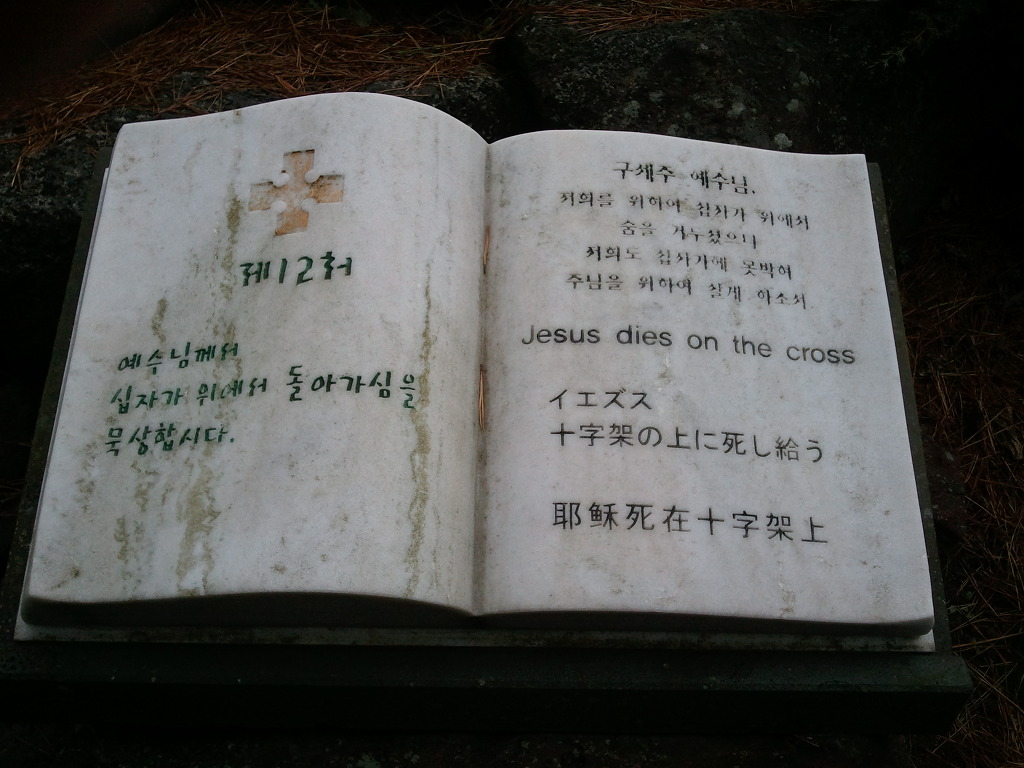 제12처
예수님께서
십자가 위에서 돌아가심을
묵상합시다.
구세주 예수님,
저희를 위하여 십자가 위에서
숨을 거두셨으니
저희도 십자가에 못박혀
주님을 위하여 살게 하소서.
Jesus dies on the cross
イエズス
十字架の上に死し給う
耶稣死在十字架上